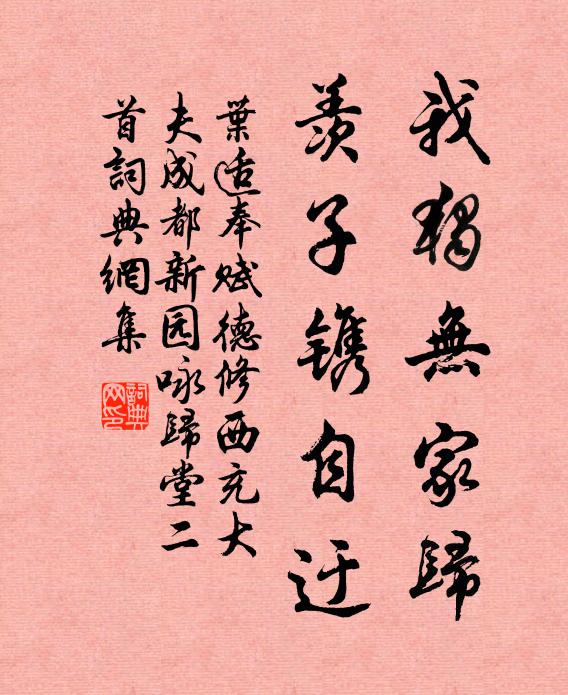 我獨無家歸
羨子鐫自迂
葉适奉賦德修西充大
夫成都新园咏歸堂二
首詞典網集
詞典
网印